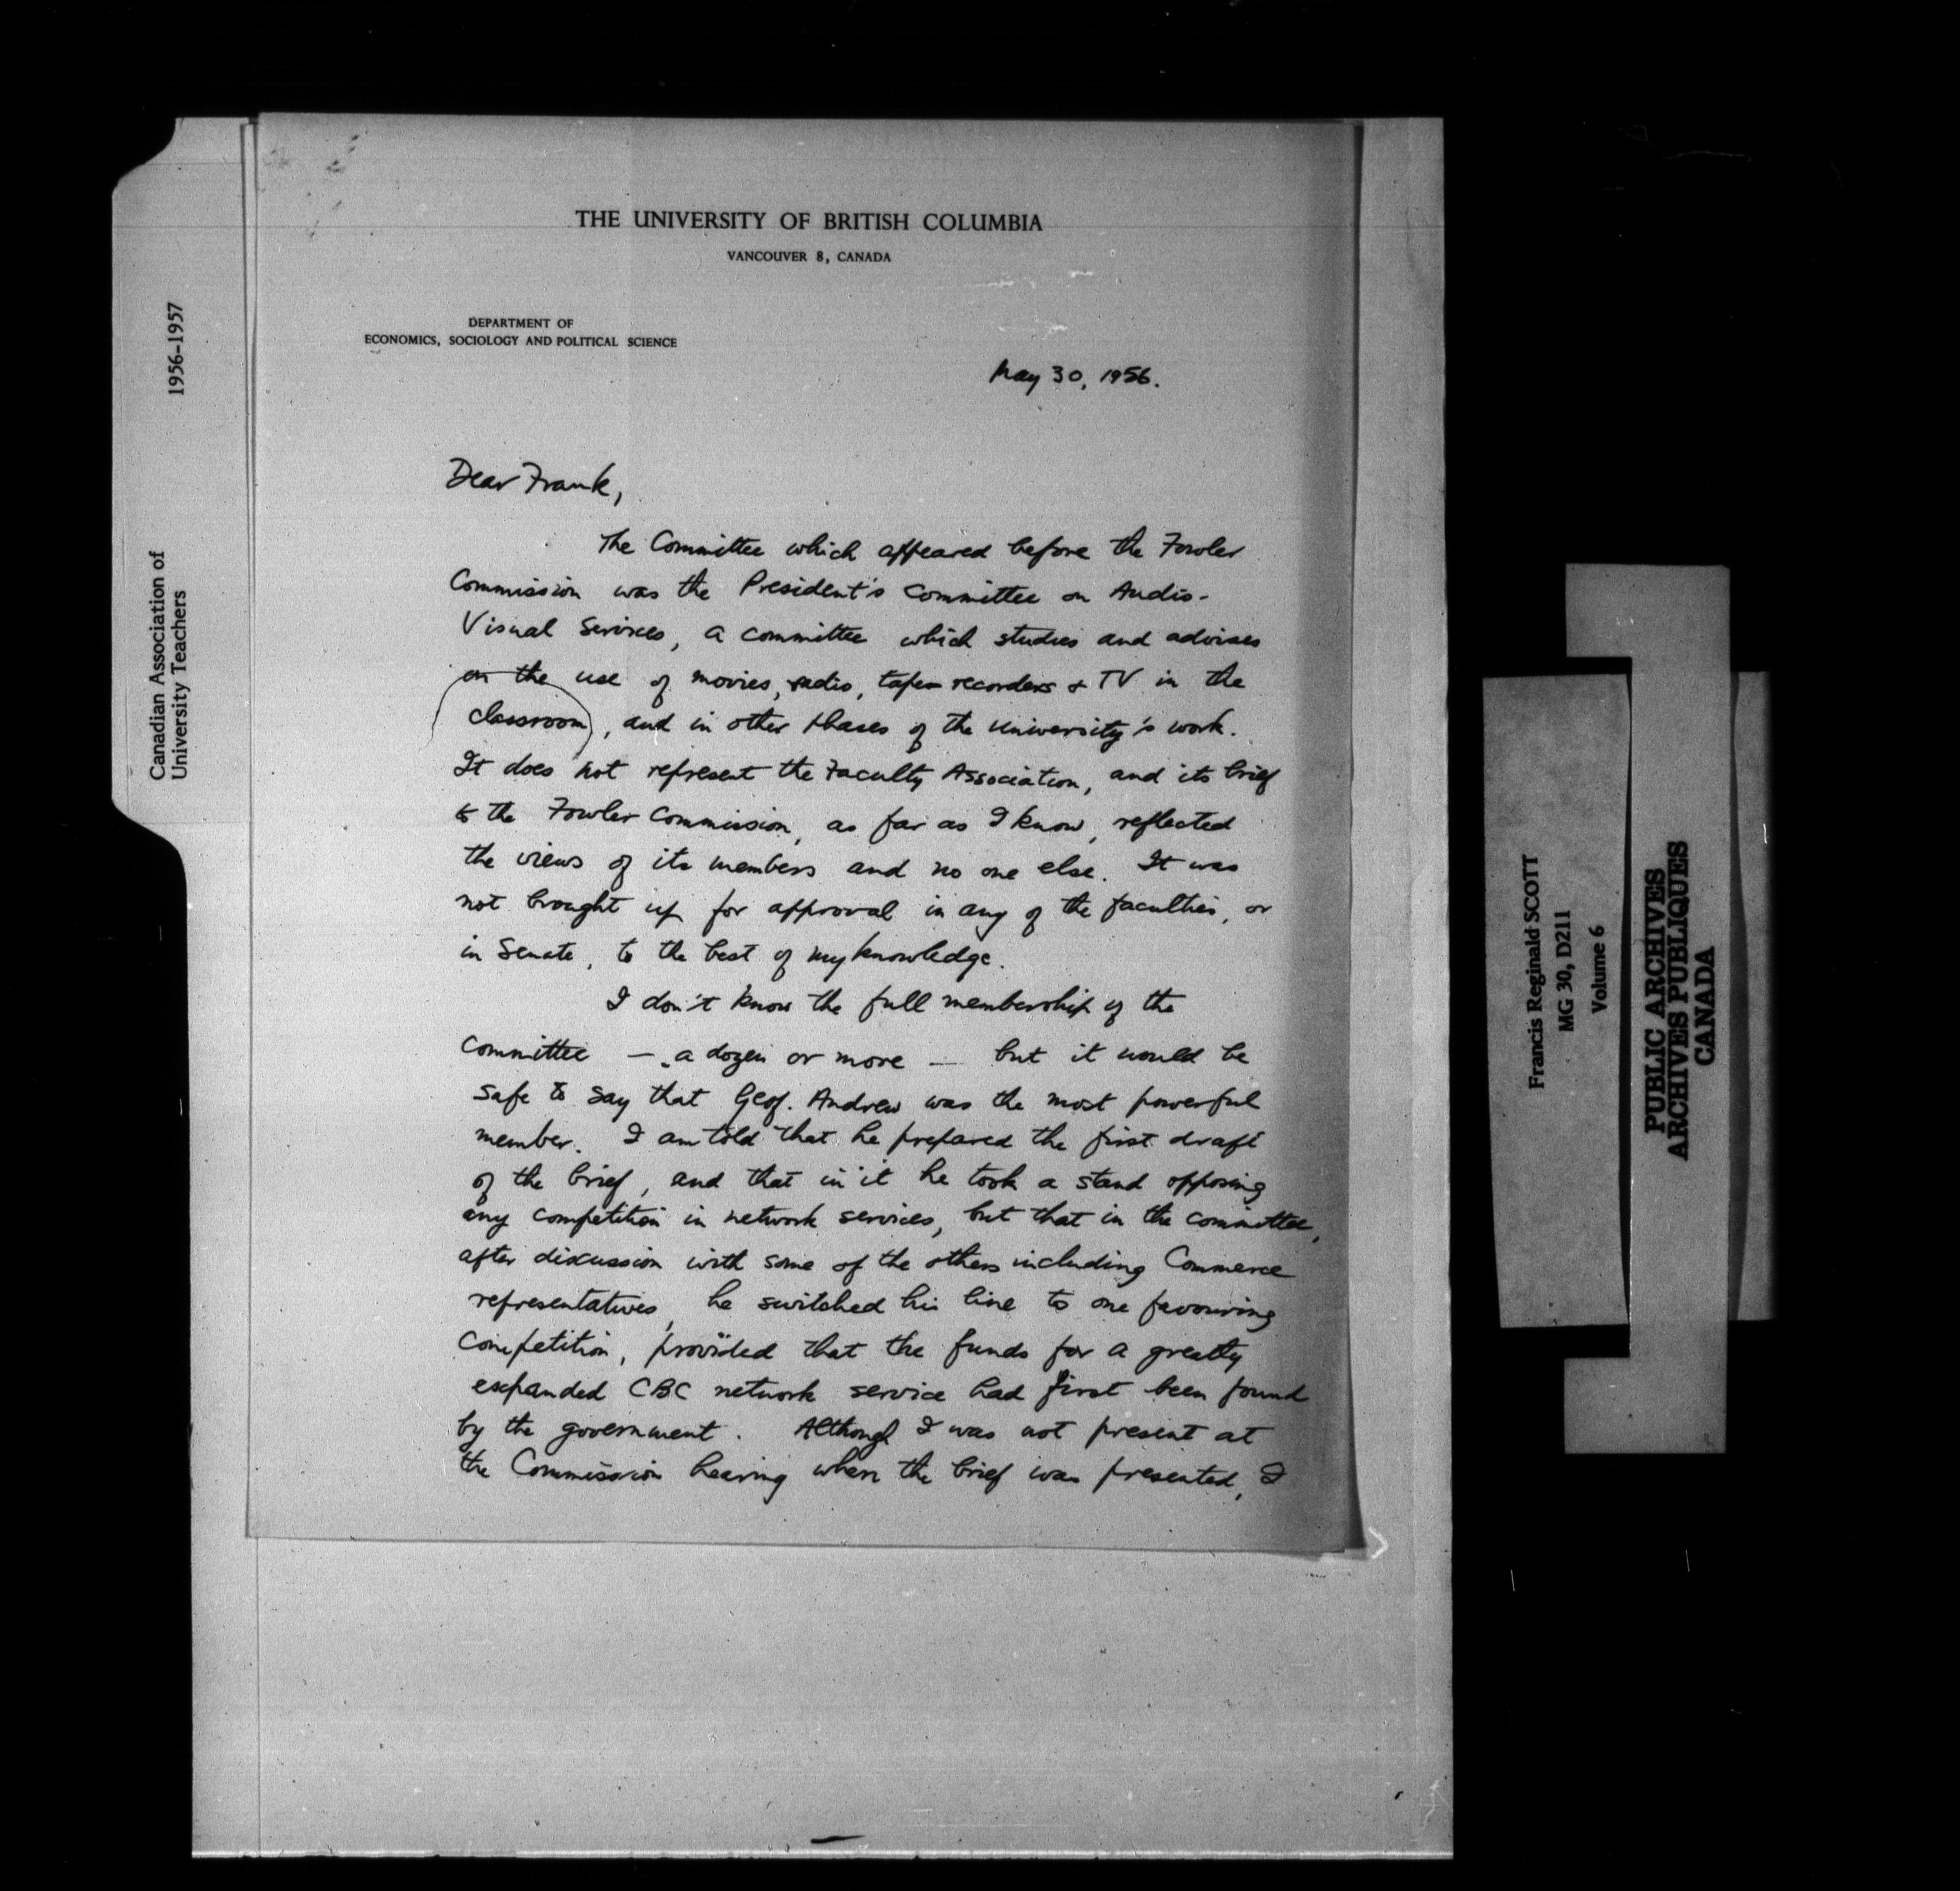 THE UNIVERSITY OF BRITISH COLUMBIA
VANCOUVER 8, CANADA
DEPARTMENT OF
ECONOMICS, SOCIOLOGY AND POLITICAL SCIENCE
May 30, 1956.
Dear Frank,
The Committee which appeared before the Fowler
Commission was the President's Committee on Audio-
Visual Services, a committee which studies and advises
on the use of movies, radio, tape recorders & TV in the
classroom, and in other phases of the University's work.
It does not represent the Faculty Association, and its brief
to the Fowler Commission, as far as I know, reflected
the views of its members and no one else. It was
not brought up for approval in any of the faculties, or
in Senate, to the best of my knowledge.
I don't know the full membership of the
Committee — a dozen or more — but it would be
safe to say that Geof. Andrew was the most powerful
member. I am told that he prepared the first draft
of the brief, and that in it he took a stand opposing
any competition in network services, but that in the committee,
after discussion with some of the others including Commerce
representatives, he switched his line to one favouring
competition, provided that the funds for a greatly
expanded CBC network service had first been found
by the government. Although I was not present at
the Commission hearing when the brief was presented, I
Canadian Association of
University Teachers
1956-1957
Francis Reginald SCOTT
MG 30, D211
Volume 6
PUBLIC ARCHIVES
ARCHIVES PUBLIQUES
CANADA